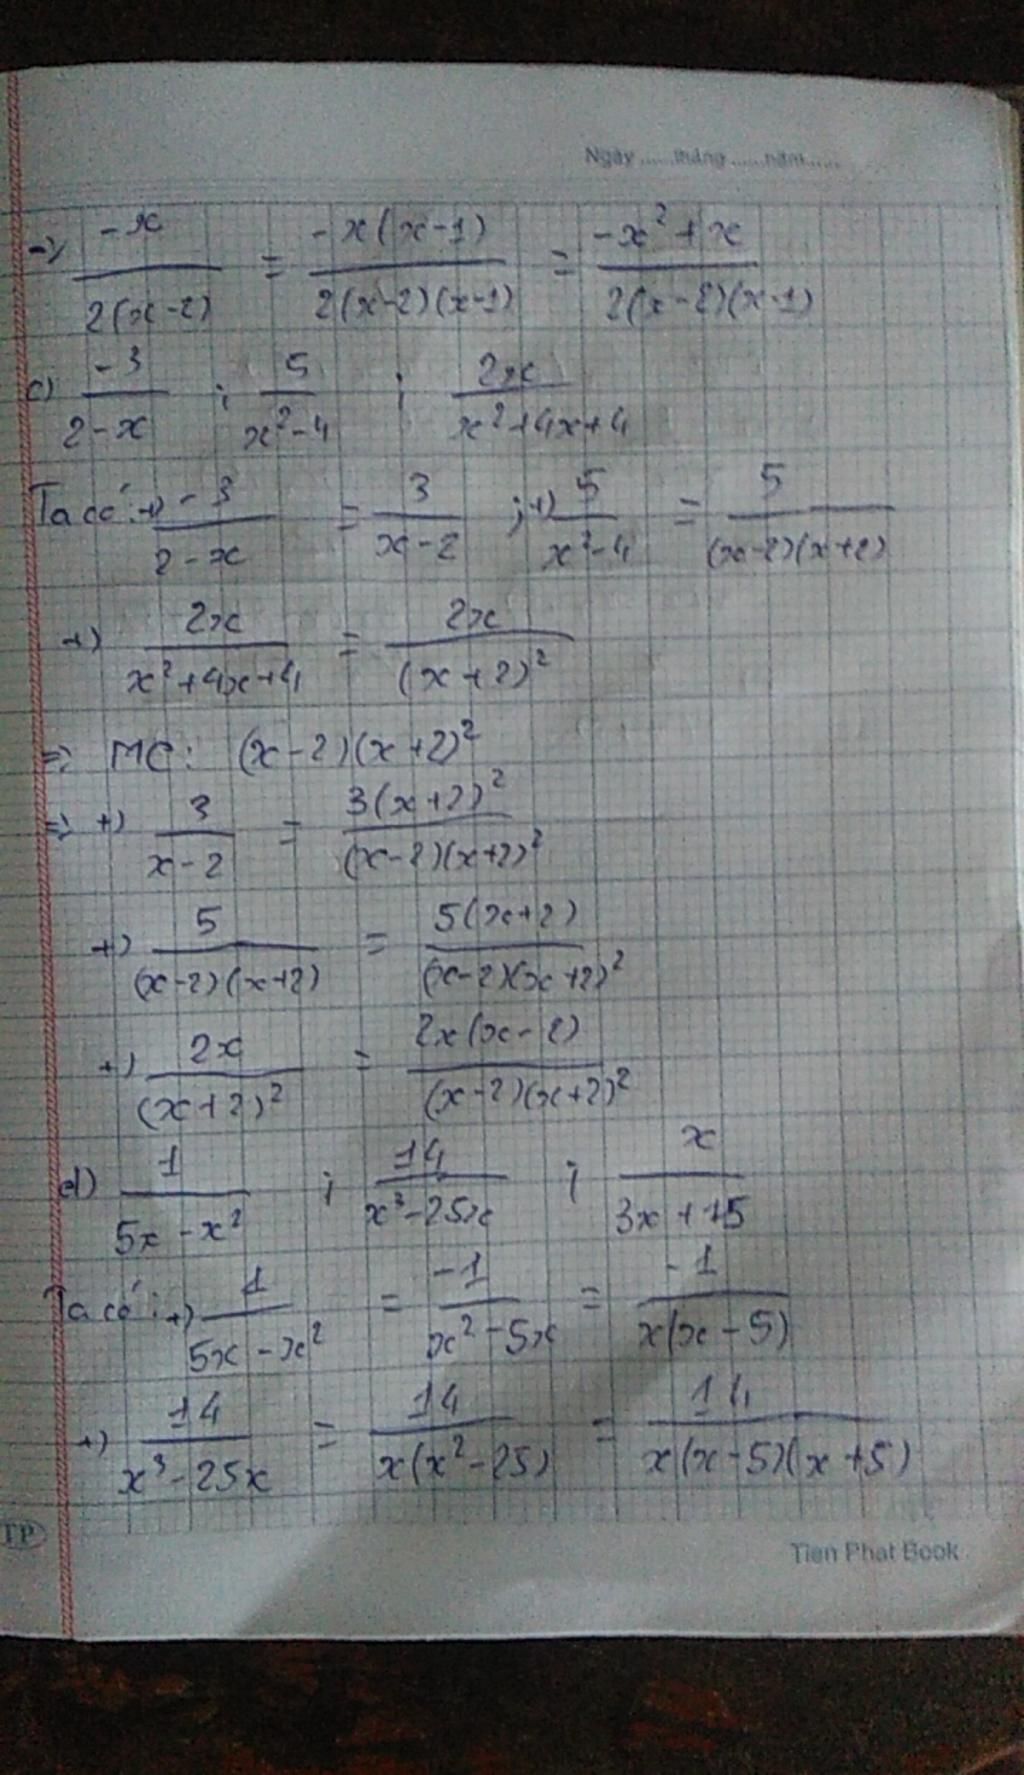 Ngày ......tháng ......năm......
+) -x/2(x-2) = -x(x-1)/2(x-2)(x-1) = -x²+x/2(x-2)(x-1)
c) -3/2-x ; 5/x²-4 ; 2x/x²+4x+4
Ta có: +) -3/2-x = 3/x-2 ; +) 5/x²-4 = 5/(x-2)(x+2)
+) 2x/x²+4x+4 = 2x/(x+2)²
=> MC: (x-2)(x+2)²
=> +) 3/x-2 = 3(x+2)²/(x-2)(x+2)²
+) 5/(x-2)(x+2) = 5(x+2)/(x-2)(x+2)²
+) 2x/(x+2)² = 2x(x-2)/(x-2)(x+2)²
d) 1/5x-x² ; 14/x³-25x ; x/3x+15
Ta có: +) 1/5x-x² = -1/x²-5x = -1/x(x-5)
+) 14/x³-25x = 14/x(x²-25) = 14/x(x-5)(x+5)
TP
Tien Phat Book